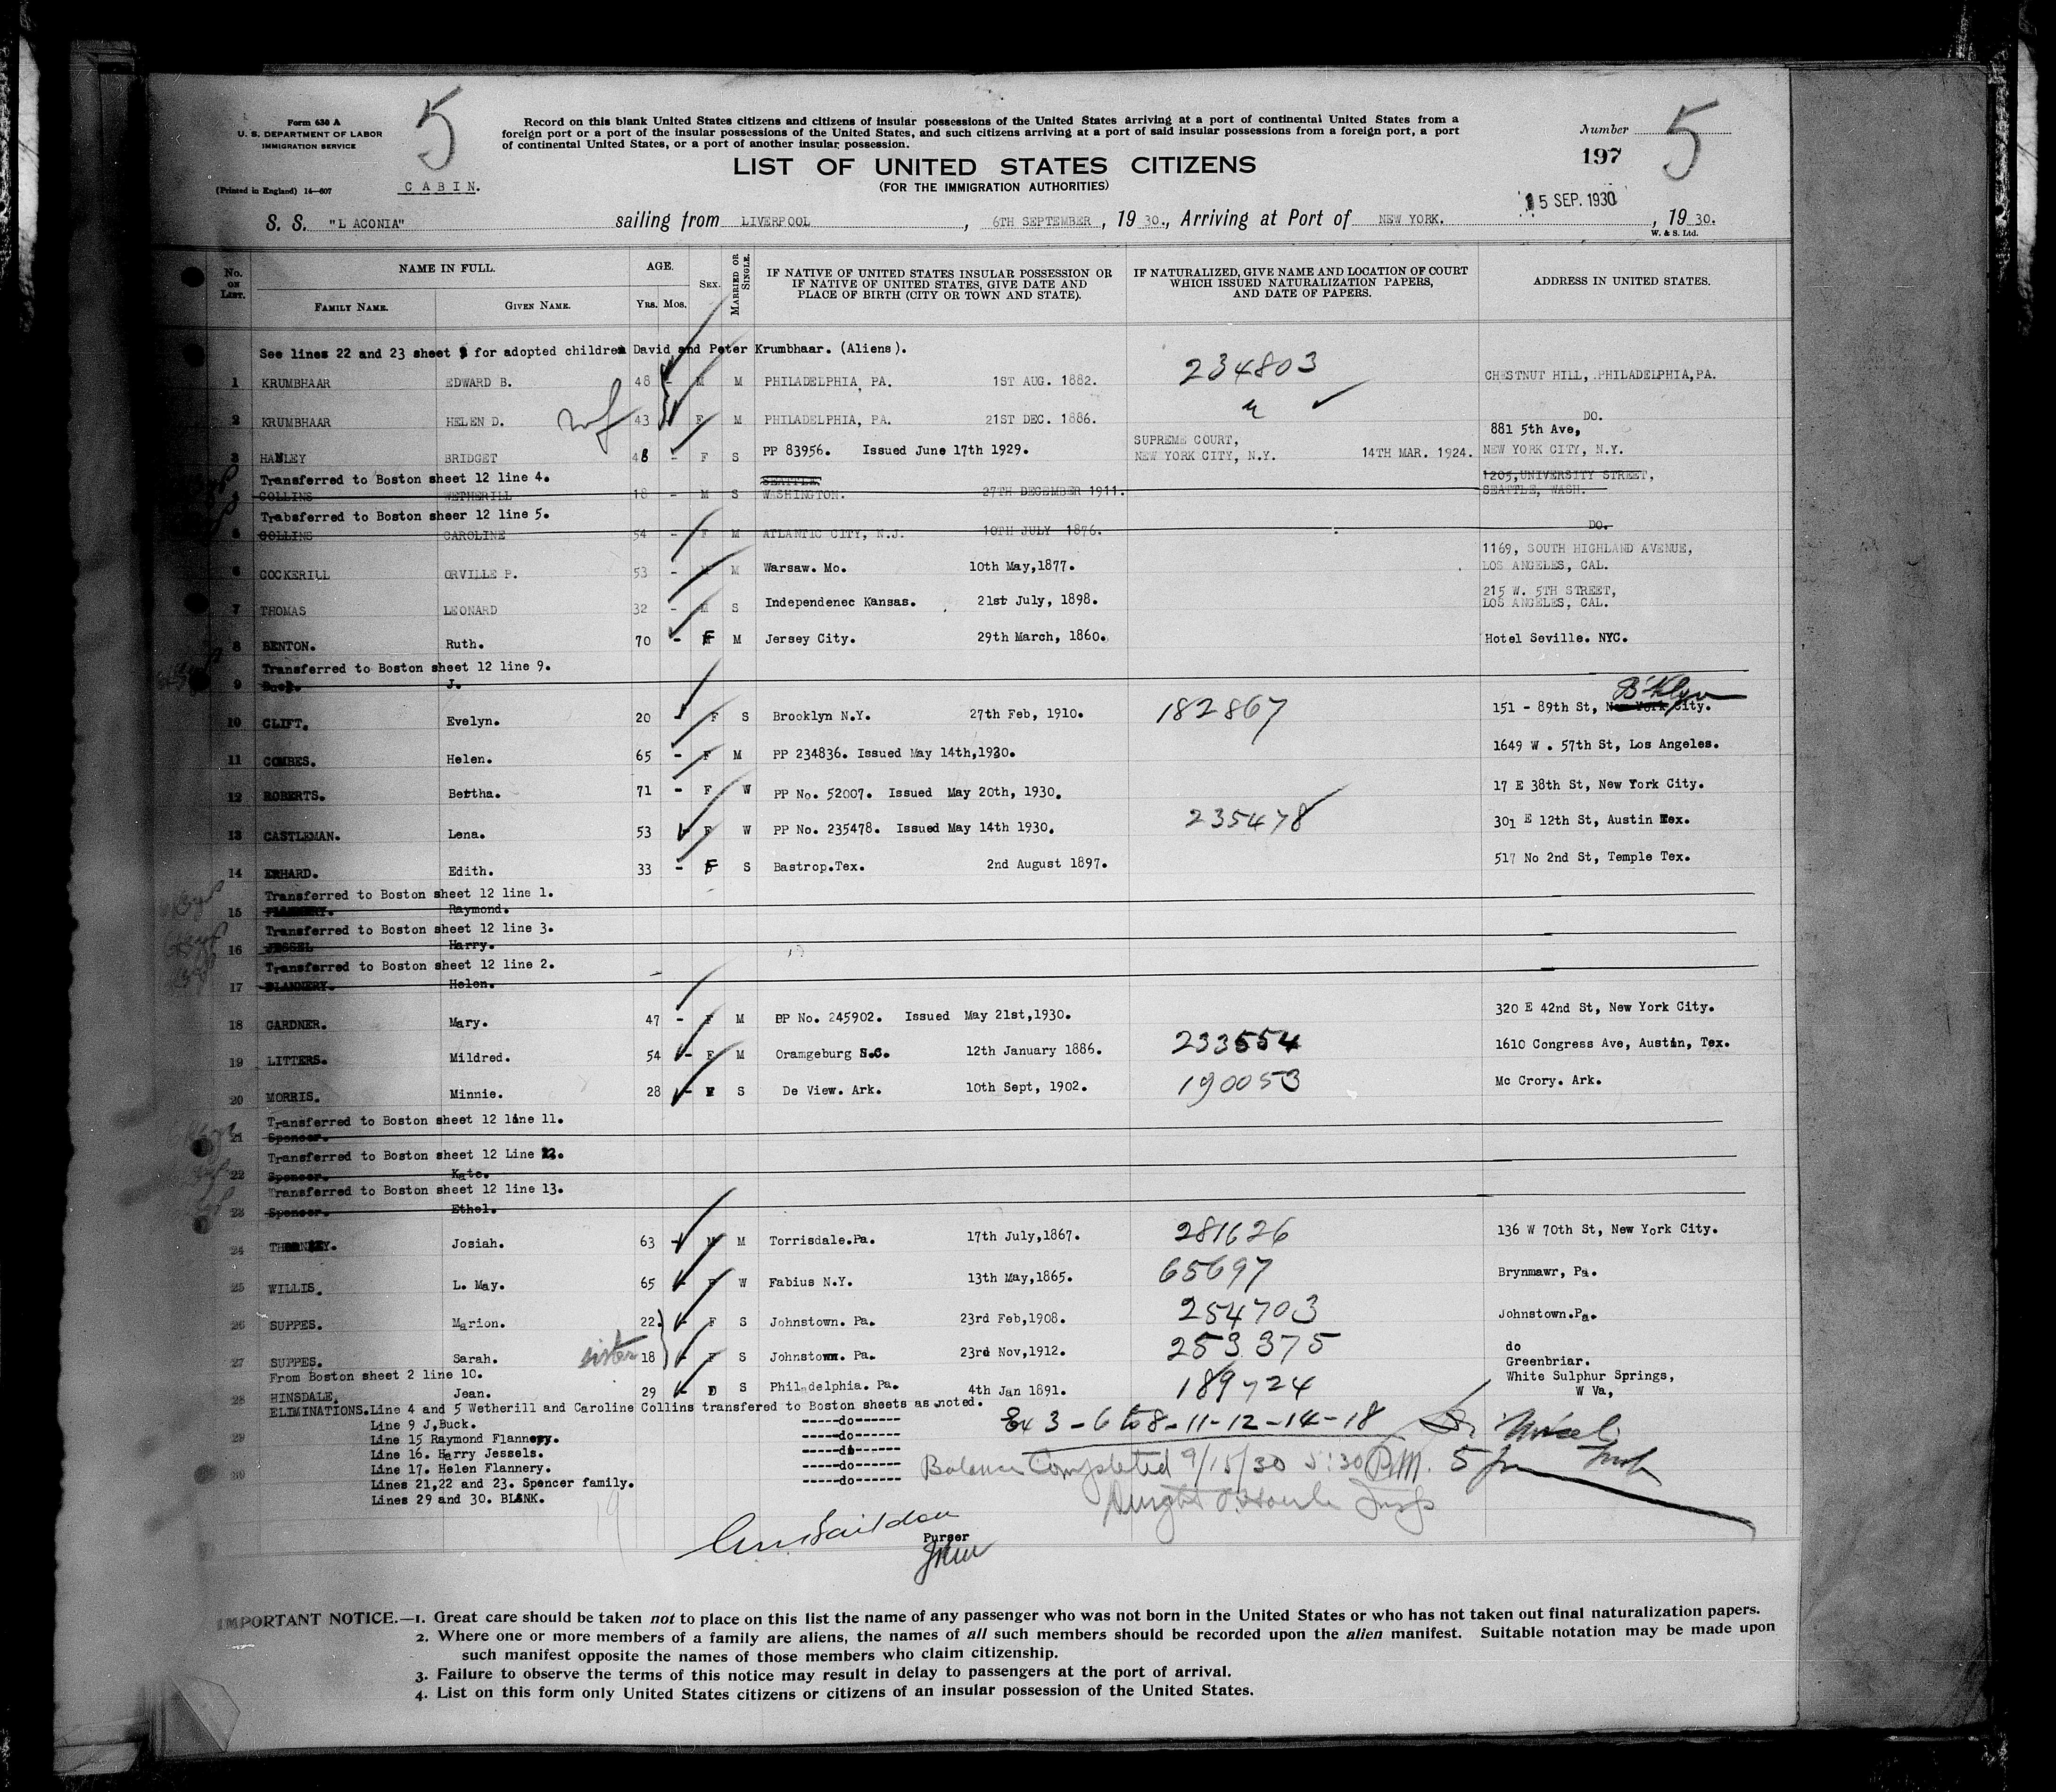 5
Form 630 A
U. S. DEPARTMENT OF LABOR
IMMIGRATION SERVICE
(Printed in England) 14—607
CABIN.
Record on this blank United States citizens and citizens of insular possessions of the United States arriving at a port of continental United States from a
foreign port or a port of the insular possessions of the United States, and such citizens arriving at a port of said insular possessions from a foreign port, a port
of continental United States, or a port of another insular possession.
LIST OF UNITED STATES CITIZENS
(FOR THE IMMIGRATION AUTHORITIES)
Number 5
197
15 SEP. 1930
S. S. "L ACONIA" sailing from LIVERPOOL, 6TH SEPTEMBER, 1930., Arriving at Port of NEW YORK. , 1930.
W. & S. Ltd.
No. ON LIST. NAME IN FULL. FAMILY NAME. GIVEN NAME. AGE. Yrs. Mos. SEX. MARRIED OR SINGLE. IF NATIVE OF UNITED STATES INSULAR POSSESSION OR IF NATIVE OF UNITED STATES, GIVE DATE AND PLACE OF BIRTH (CITY OR TOWN AND STATE). IF NATURALIZED, GIVE NAME AND LOCATION OF COURT WHICH ISSUED NATURALIZATION PAPERS, AND DATE OF PAPERS. ADDRESS IN UNITED STATES.
See lines 22 and 23 sheet for adopted children David and Peter Krumbhaar. (Aliens).
1 KRUMBHAAR EDWARD B. 48 - M M PHILADELPHIA, PA. 1ST AUG. 1882. 234803 CHESTNUT HILL, PHILADELPHIA, PA.
2 KRUMBHAAR HELEN D. wf 43 F M PHILADELPHIA, PA. 21ST DEC. 1886. DO.
3 HANLEY BRIDGET 48 - F S PP 83956. Issued June 17th 1929. SUPREME COURT, NEW YORK CITY, N.Y. 14TH MAR. 1924. 881 5th Ave, NEW YORK CITY, N.Y.
Transferred to Boston sheet 12 line 4.
4 COLLINS WETHERILL 18 - M S SEATTLE, WASHINGTON. 27TH DECEMBER 1911. 1205, UNIVERSITY STREET, SEATTLE, WASH.
Trabsferred to Boston sheer 12 line 5.
5 COLLINS CAROLINE 54 - F M ATLANTIC CITY, N.J. 10TH JULY 1876. DO.
6 COCKERILL ORVILLE P. 53 - M M Warsaw. Mo. 10th May,1877. 1169, SOUTH HIGHLAND AVENUE, LOS ANGELES, CAL.
7 THOMAS LEONARD 32 - M S Independenec Kansas. 21st July, 1898. 215 W. 5TH STREET, LOS ANGELES, CAL.
8 BENTON. Ruth. 70 - F M Jersey City. 29th March, 1860. Hotel Seville. NYC.
Transferred to Boston sheet 12 line 9.
9 Buck. J.
10 CLIFT. Evelyn. 20 - F S Brooklyn N.Y. 27th Feb, 1910. 182867 151 - 89th St, New York City. B'klyn
11 COMBES. Helen. 65 - F M PP 234836. Issued May 14th,1930. 1649 W . 57th St, Los Angeles.
12 ROBERTS. Bertha. 71 - F W PP No. 52007. Issued May 20th, 1930. 17 E 38th St, New York City.
13 CASTLEMAN. Lena. 53 - F W PP No. 235478. Issued May 14th 1930. 235478 301 E 12th St, Austin Tex.
14 ERHARD. Edith. 33 - F S Bastrop.Tex. 2nd August 1897. 517 No 2nd St, Temple Tex.
Transferred to Boston sheet 12 line 1.
15 FLANNERY. Raymond.
Transferred to Boston sheet 12 line 3.
16 JESSEL Harry.
Transferred to Boston sheet 12 line 2.
17 FLANNERY. Helen.
18 GARDNER. Mary. 47 - F M PP No. 245902. Issued May 21st,1930. 320 E 42nd St, New York City.
19 LITTERS. Mildred. 54 - F M Oramgeburg S.C. 12th January 1886. 233554 1610 Congress Ave, Austin, Tex.
20 MORRIS. Minnie. 28 - F S De View. Ark. 10th Sept, 1902. 190053 Mc Crory. Ark.
Transferred to Boston sheet 12 line 11.
21 Spencer.
Transferred to Boston sheet 12 Line 12.
22 Spencer. Kate.
Transferred to Boston sheet 12 line 13.
23 Spencer. Ethel.
24 Josiah. 63 - M M Torrisdale.Pa. 17th July,1867. 281626 136 W 70th St, New York City.
25 WILLIS. L. May. 65 - F W Fabius N.Y. 13th May,1865. 65697 Brynmawr, Pa.
26 SUPPES. Marion. 22. - F S Johnstown. Pa. 23rd Feb,1908. 254703 Johnstown.Pa.
27 SUPPES. Sarah. sister 18 - F S Johnstown. Pa. 23rd Nov,1912. 253375 do
From Boston sheet 2 line 10.
28 HINSDALE. Jean. 29 - S Philadelphia. Pa. 4th Jan 1891. 189724 Greenbriar. White Sulphur Springs, W Va,
ELIMINATIONS. Line 4 and 5 Wetherill and Caroline Collins transfered to Boston sheets as noted.
Line 9 J,Buck. -----do------
29 Line 15 Raymond Flannery. -----do------
Line 16. Harry Jessels. -----do------
Line 17. Helen Flannery. -----do------
30 Lines 21,22 and 23. Spencer family. -----do------
Lines 29 and 30. BLANK.
Ex 3 - 6 to 8 - 11 - 12 - 14 - 18
Balance Completed 9/15/30 5:30 P.M.
Purser
IMPORTANT NOTICE.—1. Great care should be taken not to place on this list the name of any passenger who was not born in the United States or who has not taken out final naturalization papers.
2. Where one or more members of a family are aliens, the names of all such members should be recorded upon the alien manifest. Suitable notation may be made upon
such manifest opposite the names of those members who claim citizenship.
3. Failure to observe the terms of this notice may result in delay to passengers at the port of arrival.
4. List on this form only United States citizens or citizens of an insular possession of the United States.